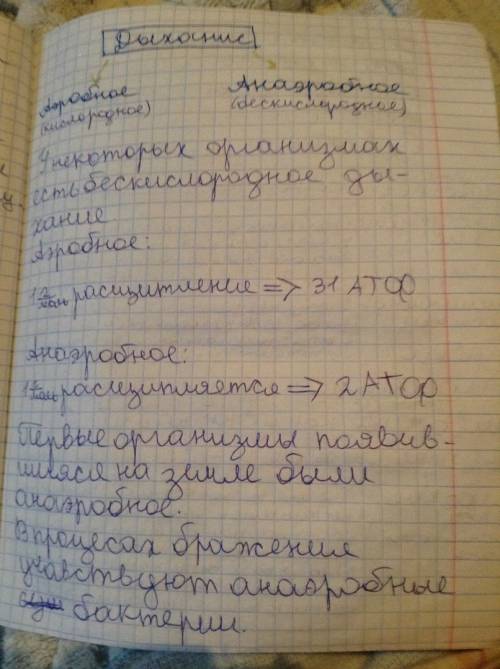 Дыхание
Аэробное Анаэробное
(кислородное) (бескислородное)
У некоторых организмах
есть бескислородное ды-
хание
Аэробное:
1 моль расщипление => 31 АТФ
Анаэробное:
1 моль расщипляется => 2 АТФ
Первые организмы появив-
шияся на земле были
анаэробное.
В процесах бражения
учавствуют анаэробные
бактерии.